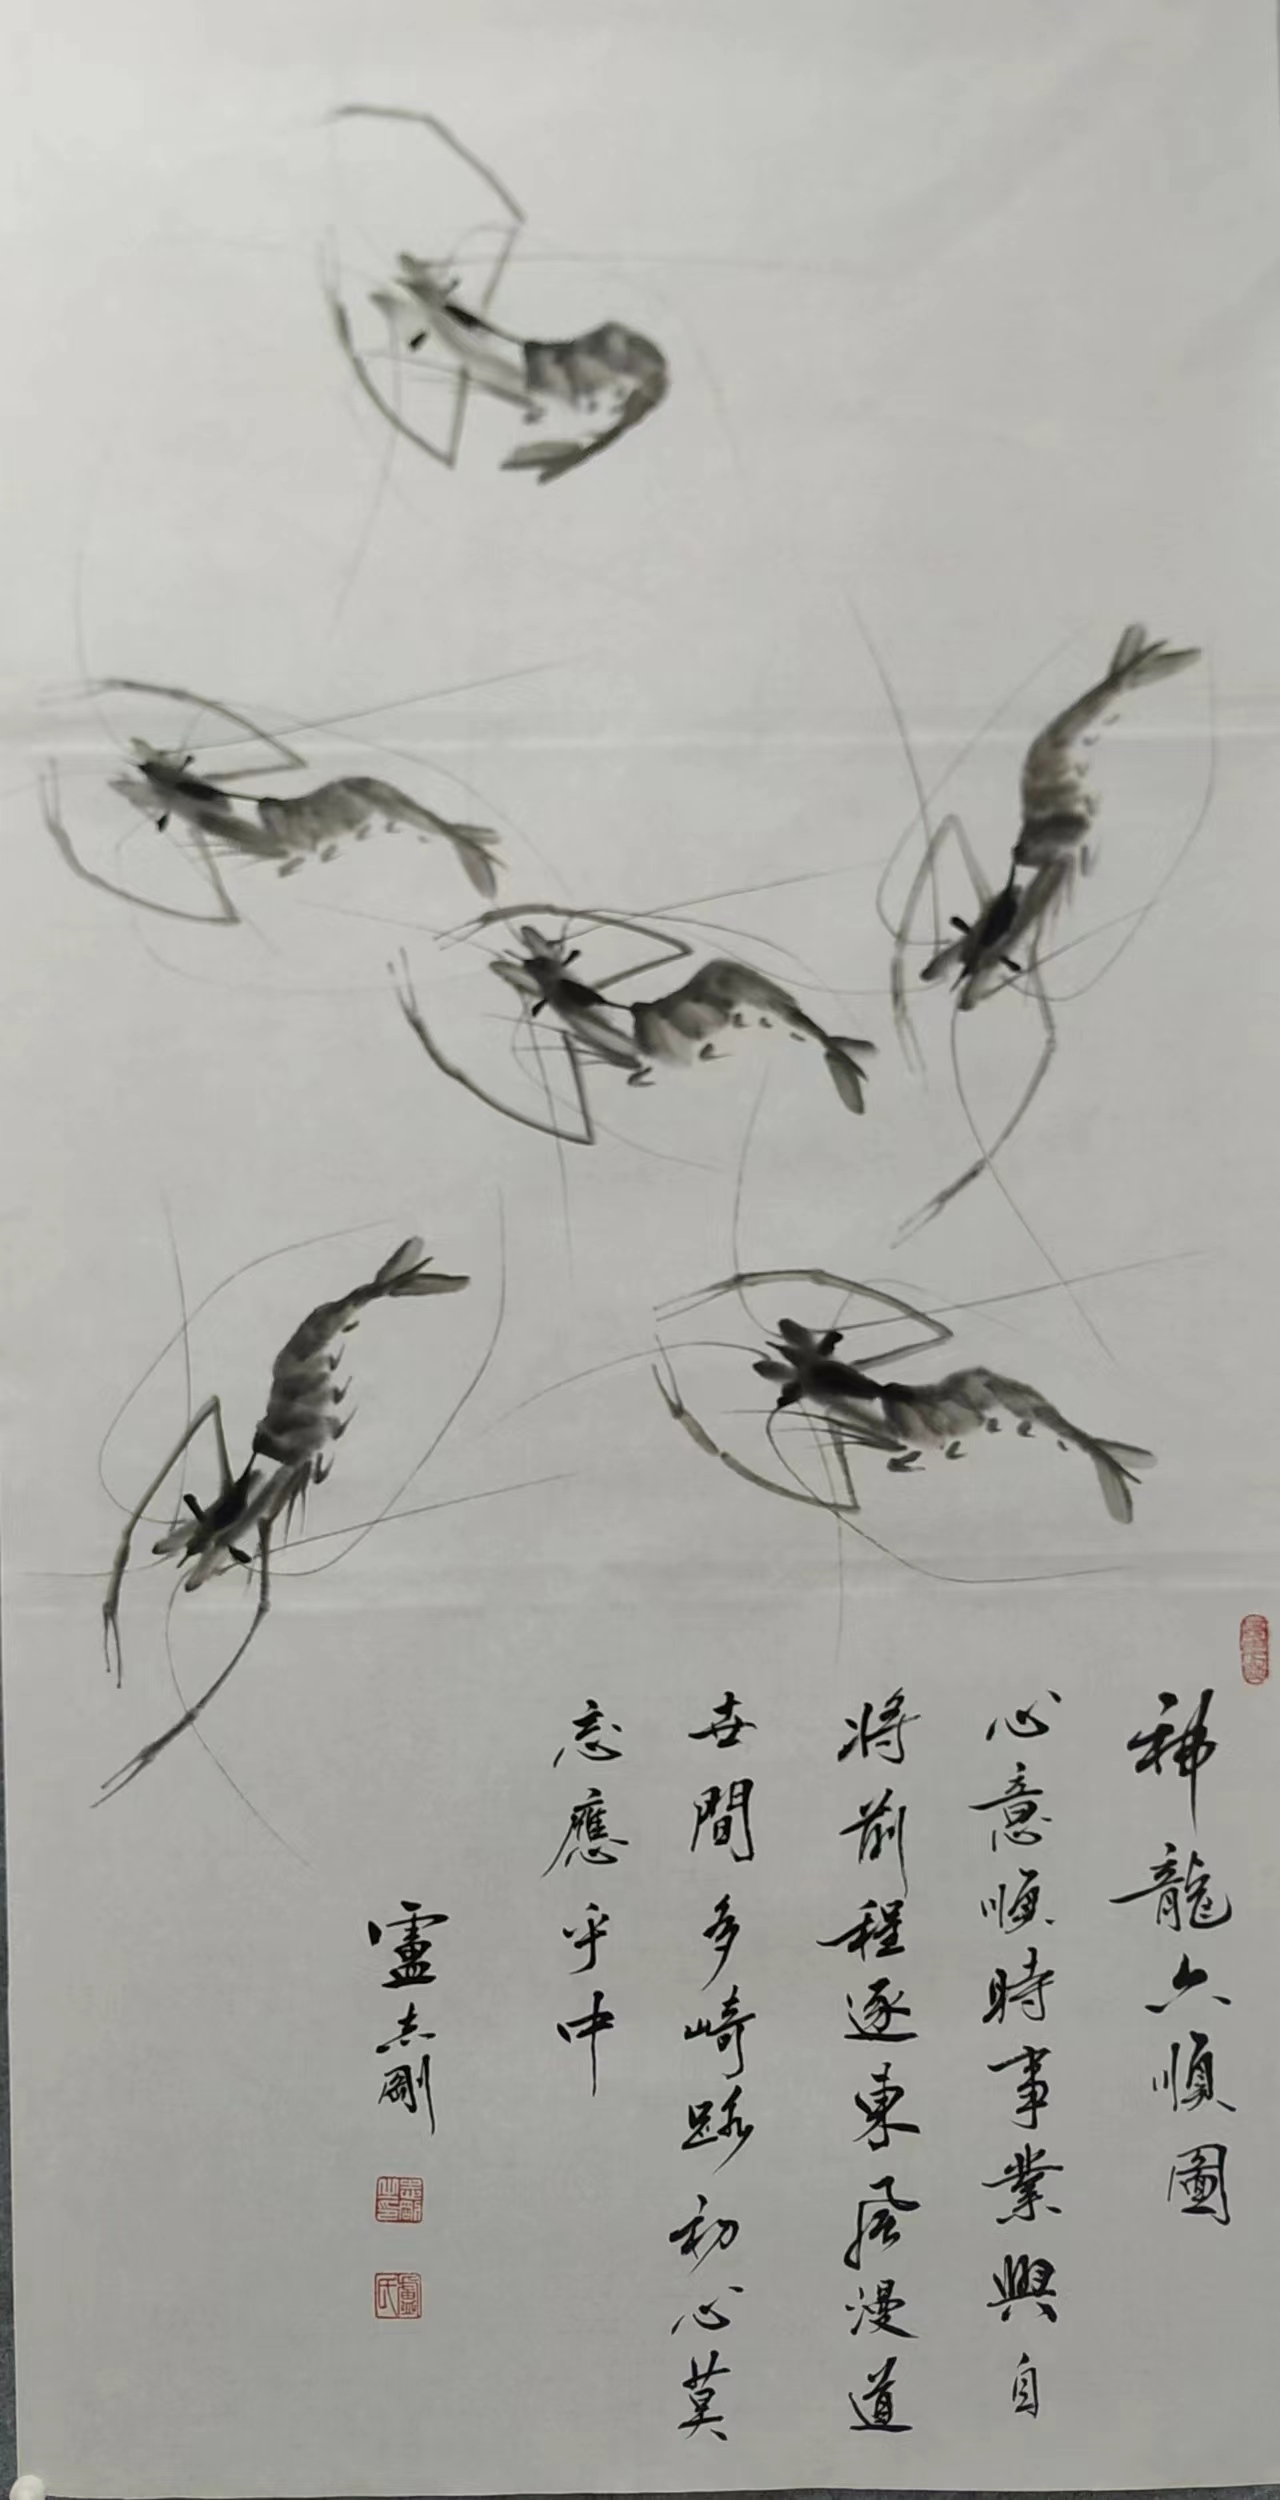 神龍六順圖
心意順時事業興自
將前程逐東風漫道
世間多崎路初心莫
忘應乎中
盧志剛
志剛之印
盧氏